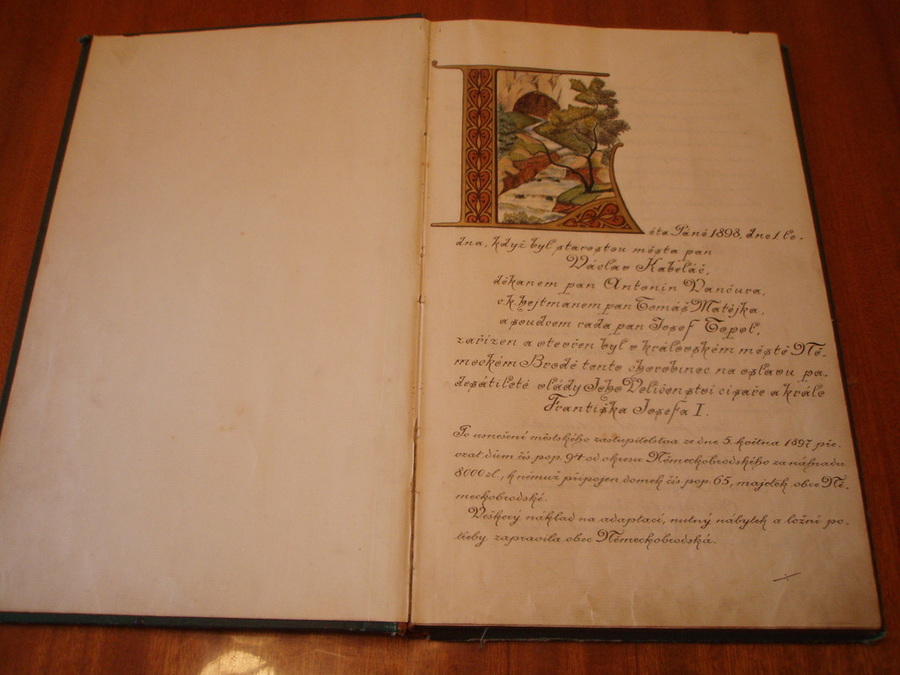 Léta Páně 1898, dne 1. le-
dna, když byl starostou města pan
Václav Kabeláč,
děkanem pan Antonín Vančura,
c. k. hejtmanem pan Tomáš Matějka,
a soudcem rada pan Josef Topol,
zařízen a otevřen byl v královském městě Ně-
meckém Brodě tento chorobinec na oslavu pa-
desátileté vlády Jeho Veličenství císaře a krále
Františka Josefa I.
Po usnešení městského zastupitelstva ze dne 5. května 1897 pře-
vzat dům čís. pop. 94 od okresu Německobrodského za náhradu
8000 zl., k němuž připojen domek čís. pop. 65, majetek obce Ně-
meckobrodské.
Veškerý náklad na adaptaci, nutný nábytek a ložní po-
třeby zapravila obec Německobrodská.